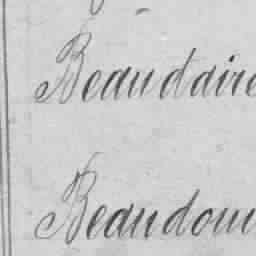 Beaudaire
Beaudoui